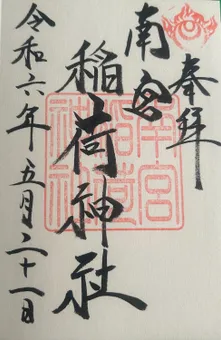 奉拝
南宮
稲荷神社
令和六年五月二十一日
南宮稲荷神社